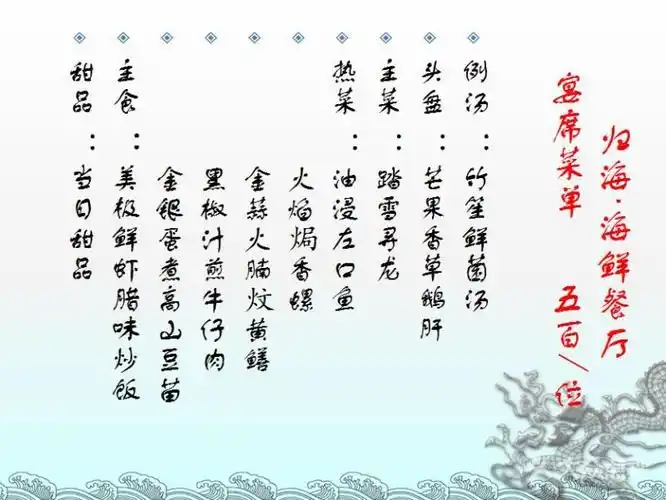 归海·海鲜餐厅
宴席菜单 五百/位
例汤：竹笙鲜菌汤
头盘：芒果香草鹅肝
主菜：踏雪寻龙
热菜：油浸左口鱼
火焰焗香螺
金蒜火腩炆黄鳝
黑椒汁煎牛仔肉
金银蛋煮高山豆苗
主食：美极鲜虾腊味炒饭
甜品：当日甜品